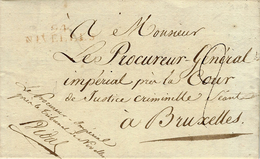 94
NIVELLES
A Monsieur
Le Procureur-Général
impérial près la Cour
de Justice criminelle Séant
a Bruxelles.
Le procureur impérial
près le Tribunal de Nivelles